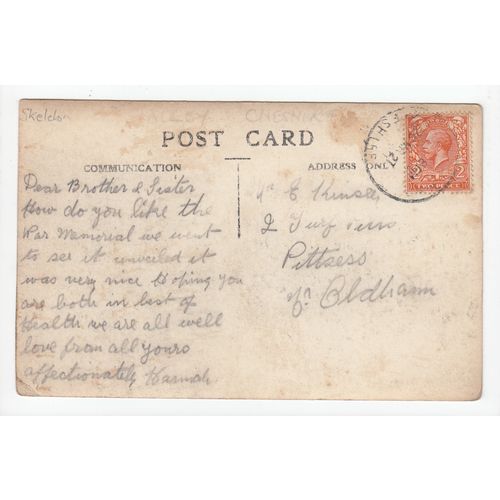 Skeldon
ALLEY CHESHIRE
POST CARD
COMMUNICATION
ADDRESS ONLY
Dear Brother & Sister
How do you like the
War Memorial we went
to see it unveiled it
was very nice Hoping you
are both in best of
Health we are all well
love from all yours
affectionately Hannah
E
2 Turf
Pittsess
Nr Oldham
TWO PENCE
2
21